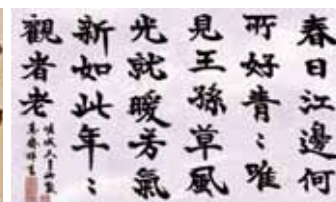 春日江邊何
所好青〻唯
見王孫草風
光就暖芳氣
新如此年〻
觀者老